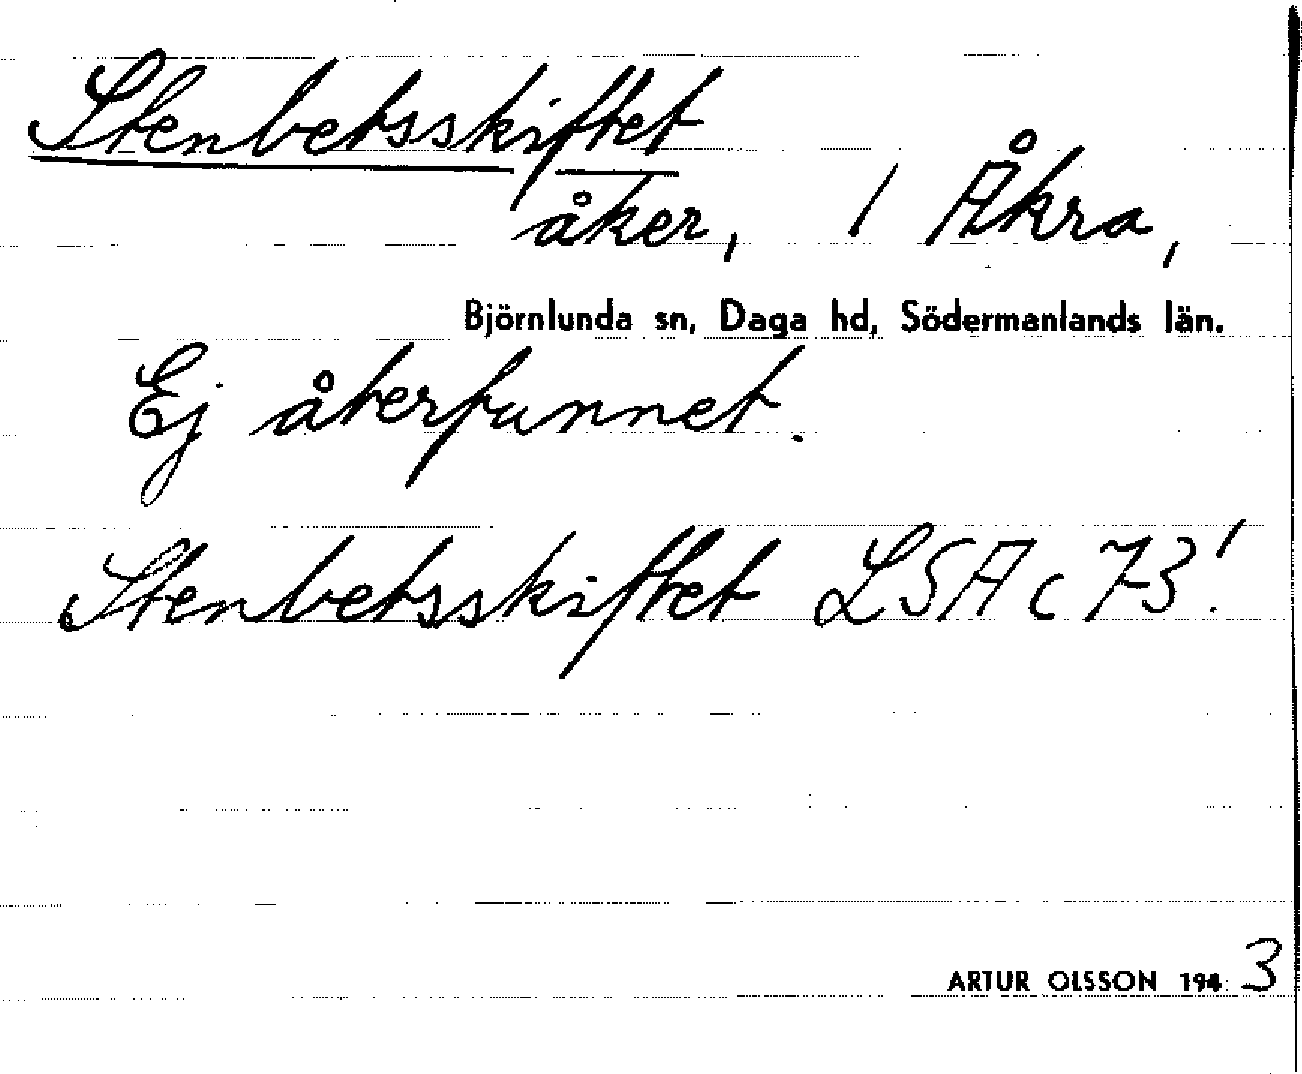 Stenbetsskiftet
åker, / Åkra,
Björnlunda sn, Daga hd, Södermanlands län.
Ej återfunnet.
Stenbetsskiftet LSA c 73!
ARTUR OLSSON 194 3